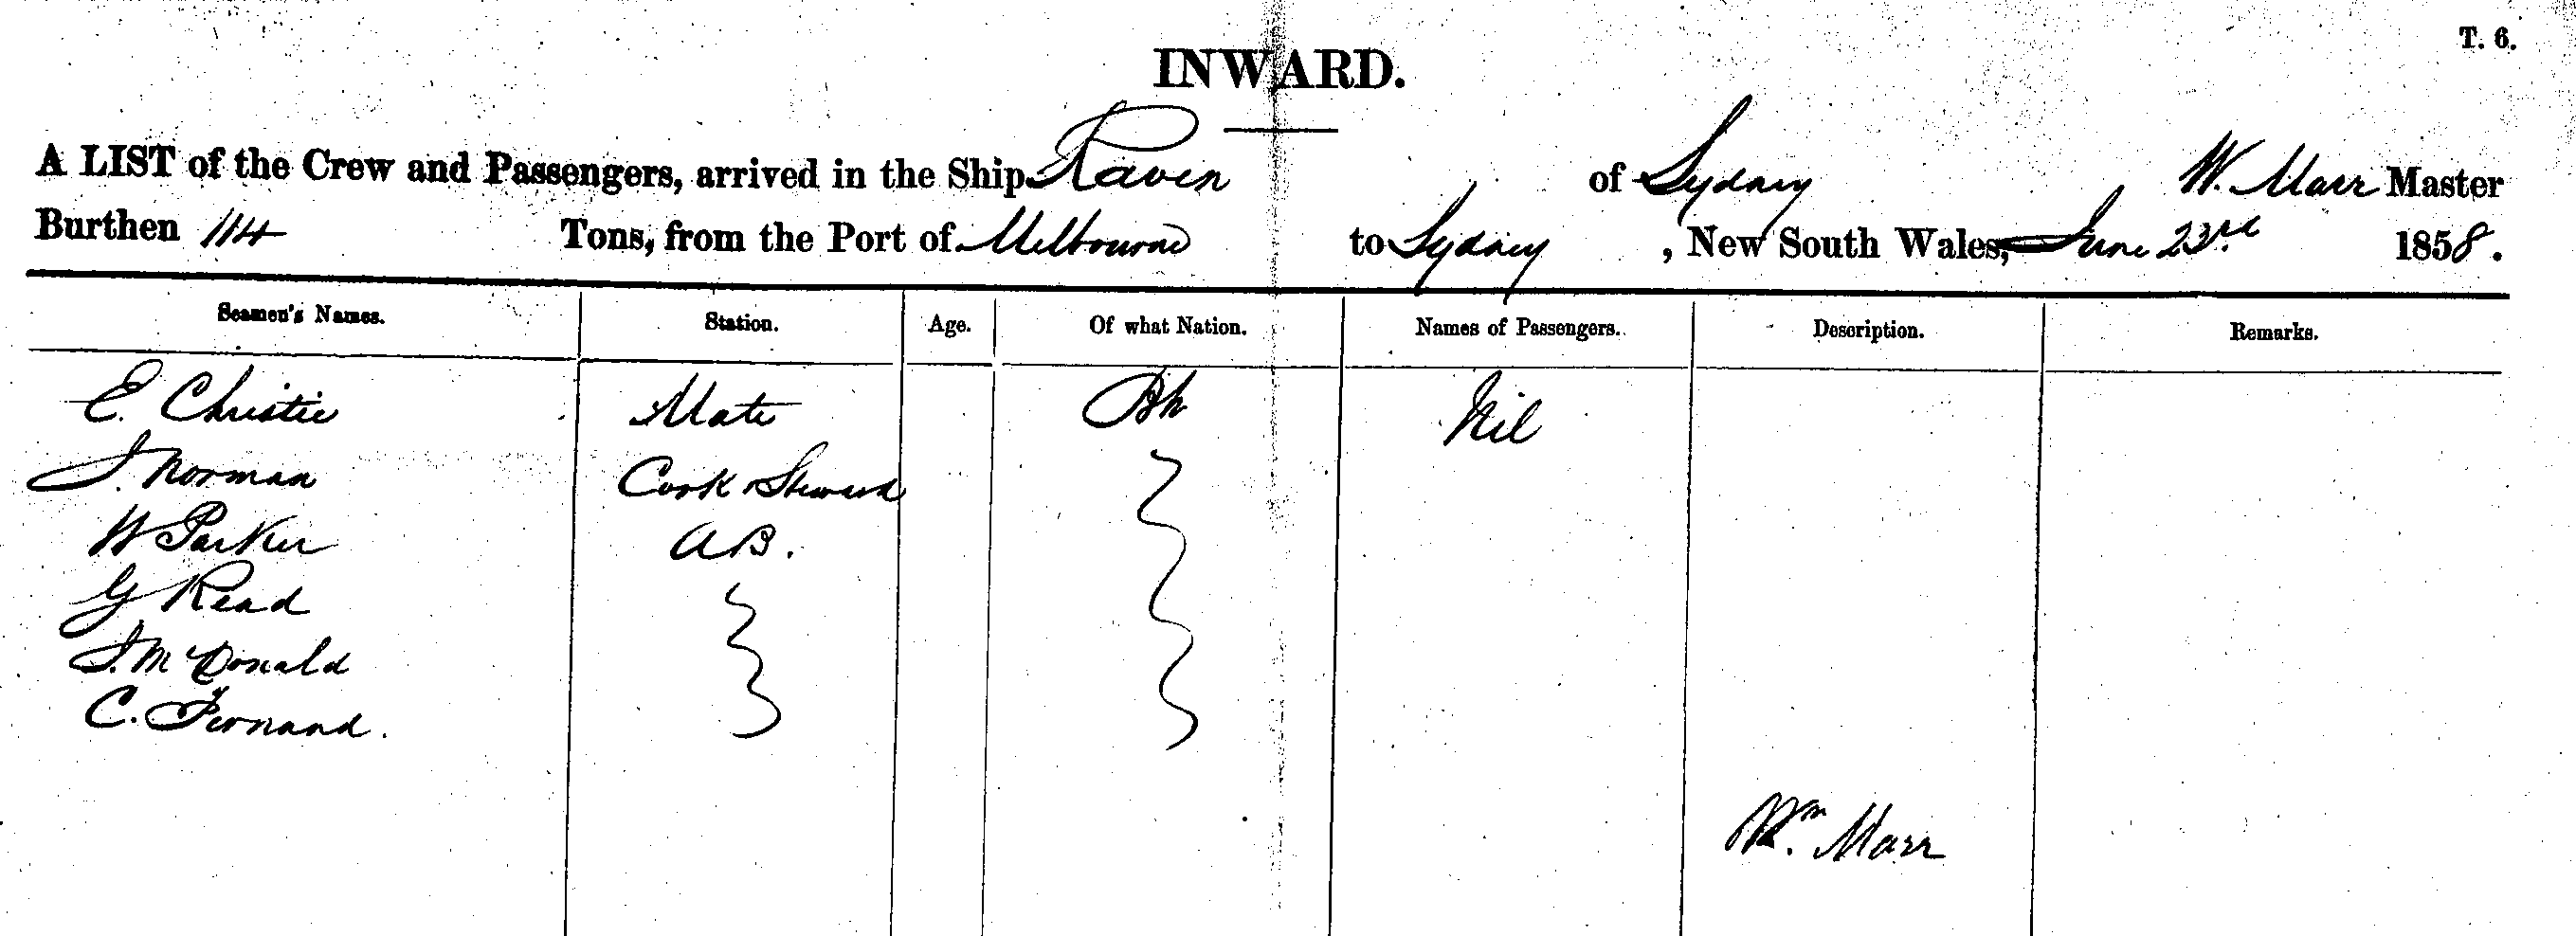 T. 6.
INWARD.
A LIST of the Crew and Passengers, arrived in the Ship Raven of Sydney W. Marr Master
Burthen 114 Tons, from the Port of Melbourne to Sydney, New South Wales, June 23rd 1858.
Seamen's Names. Station. Age. Of what Nation. Names of Passengers. Description. Remarks.
E. Christie Mate Nil
J. Norman Cook Steward
W Parker AB.
G Read
J. McDonald
C. Fernand.
Wm. Marr